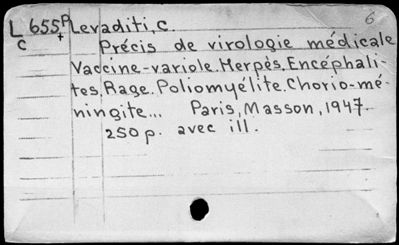 L 655P Levaditi, C. 6
C + Précis de virologie médicale
Vaccine-variole. Herpès. Encéphali-
tes. Rage. Poliomyélite. Chorio-mé-
ningite... Paris, Masson, 1947.
250 p. avec ill.